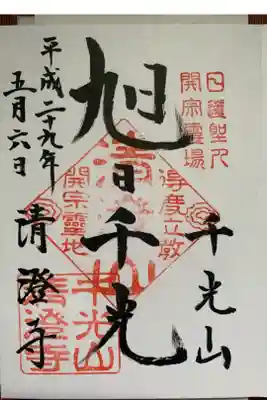 日蓮聖人
開宗靈場
千光山
得度立教
旭日千光
清澄山
開宗靈地
千光山
清澄寺
平成二十九年
五月六日
清澄寺